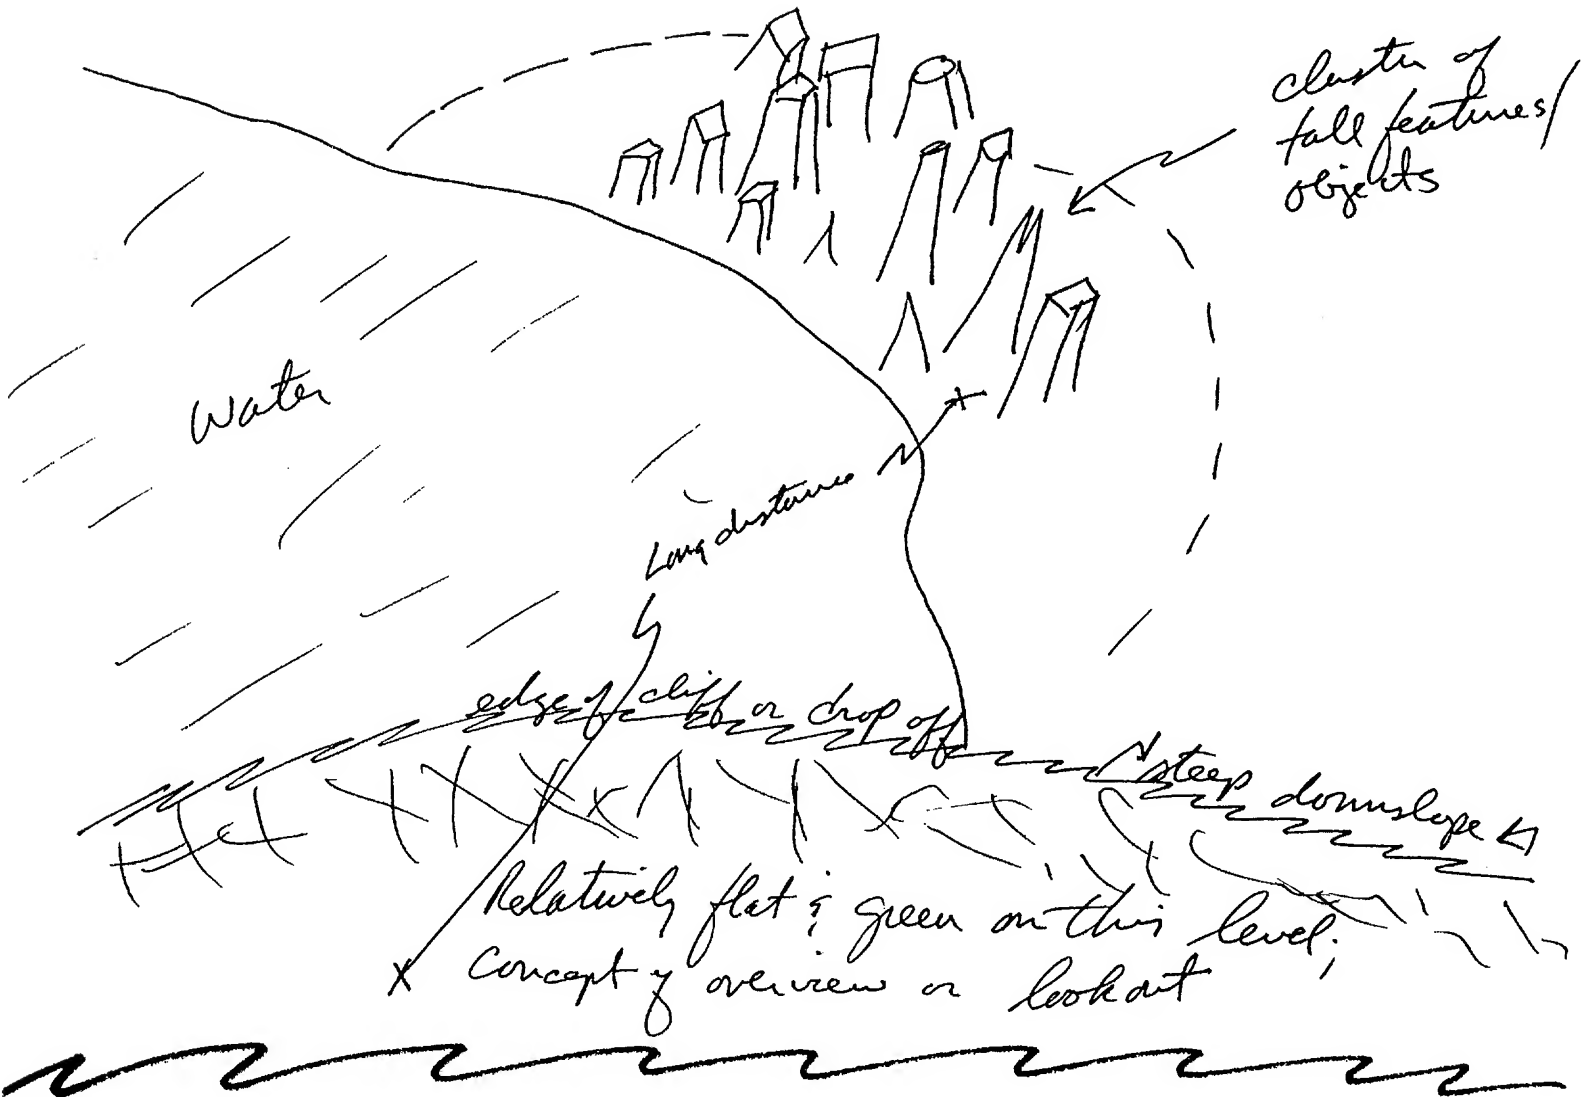 cluster of
tall features/
objects
Water
Long distance
edge of cliff or drop off
steep downslope
Relatively flat & green on this level;
concept of overview or lookout